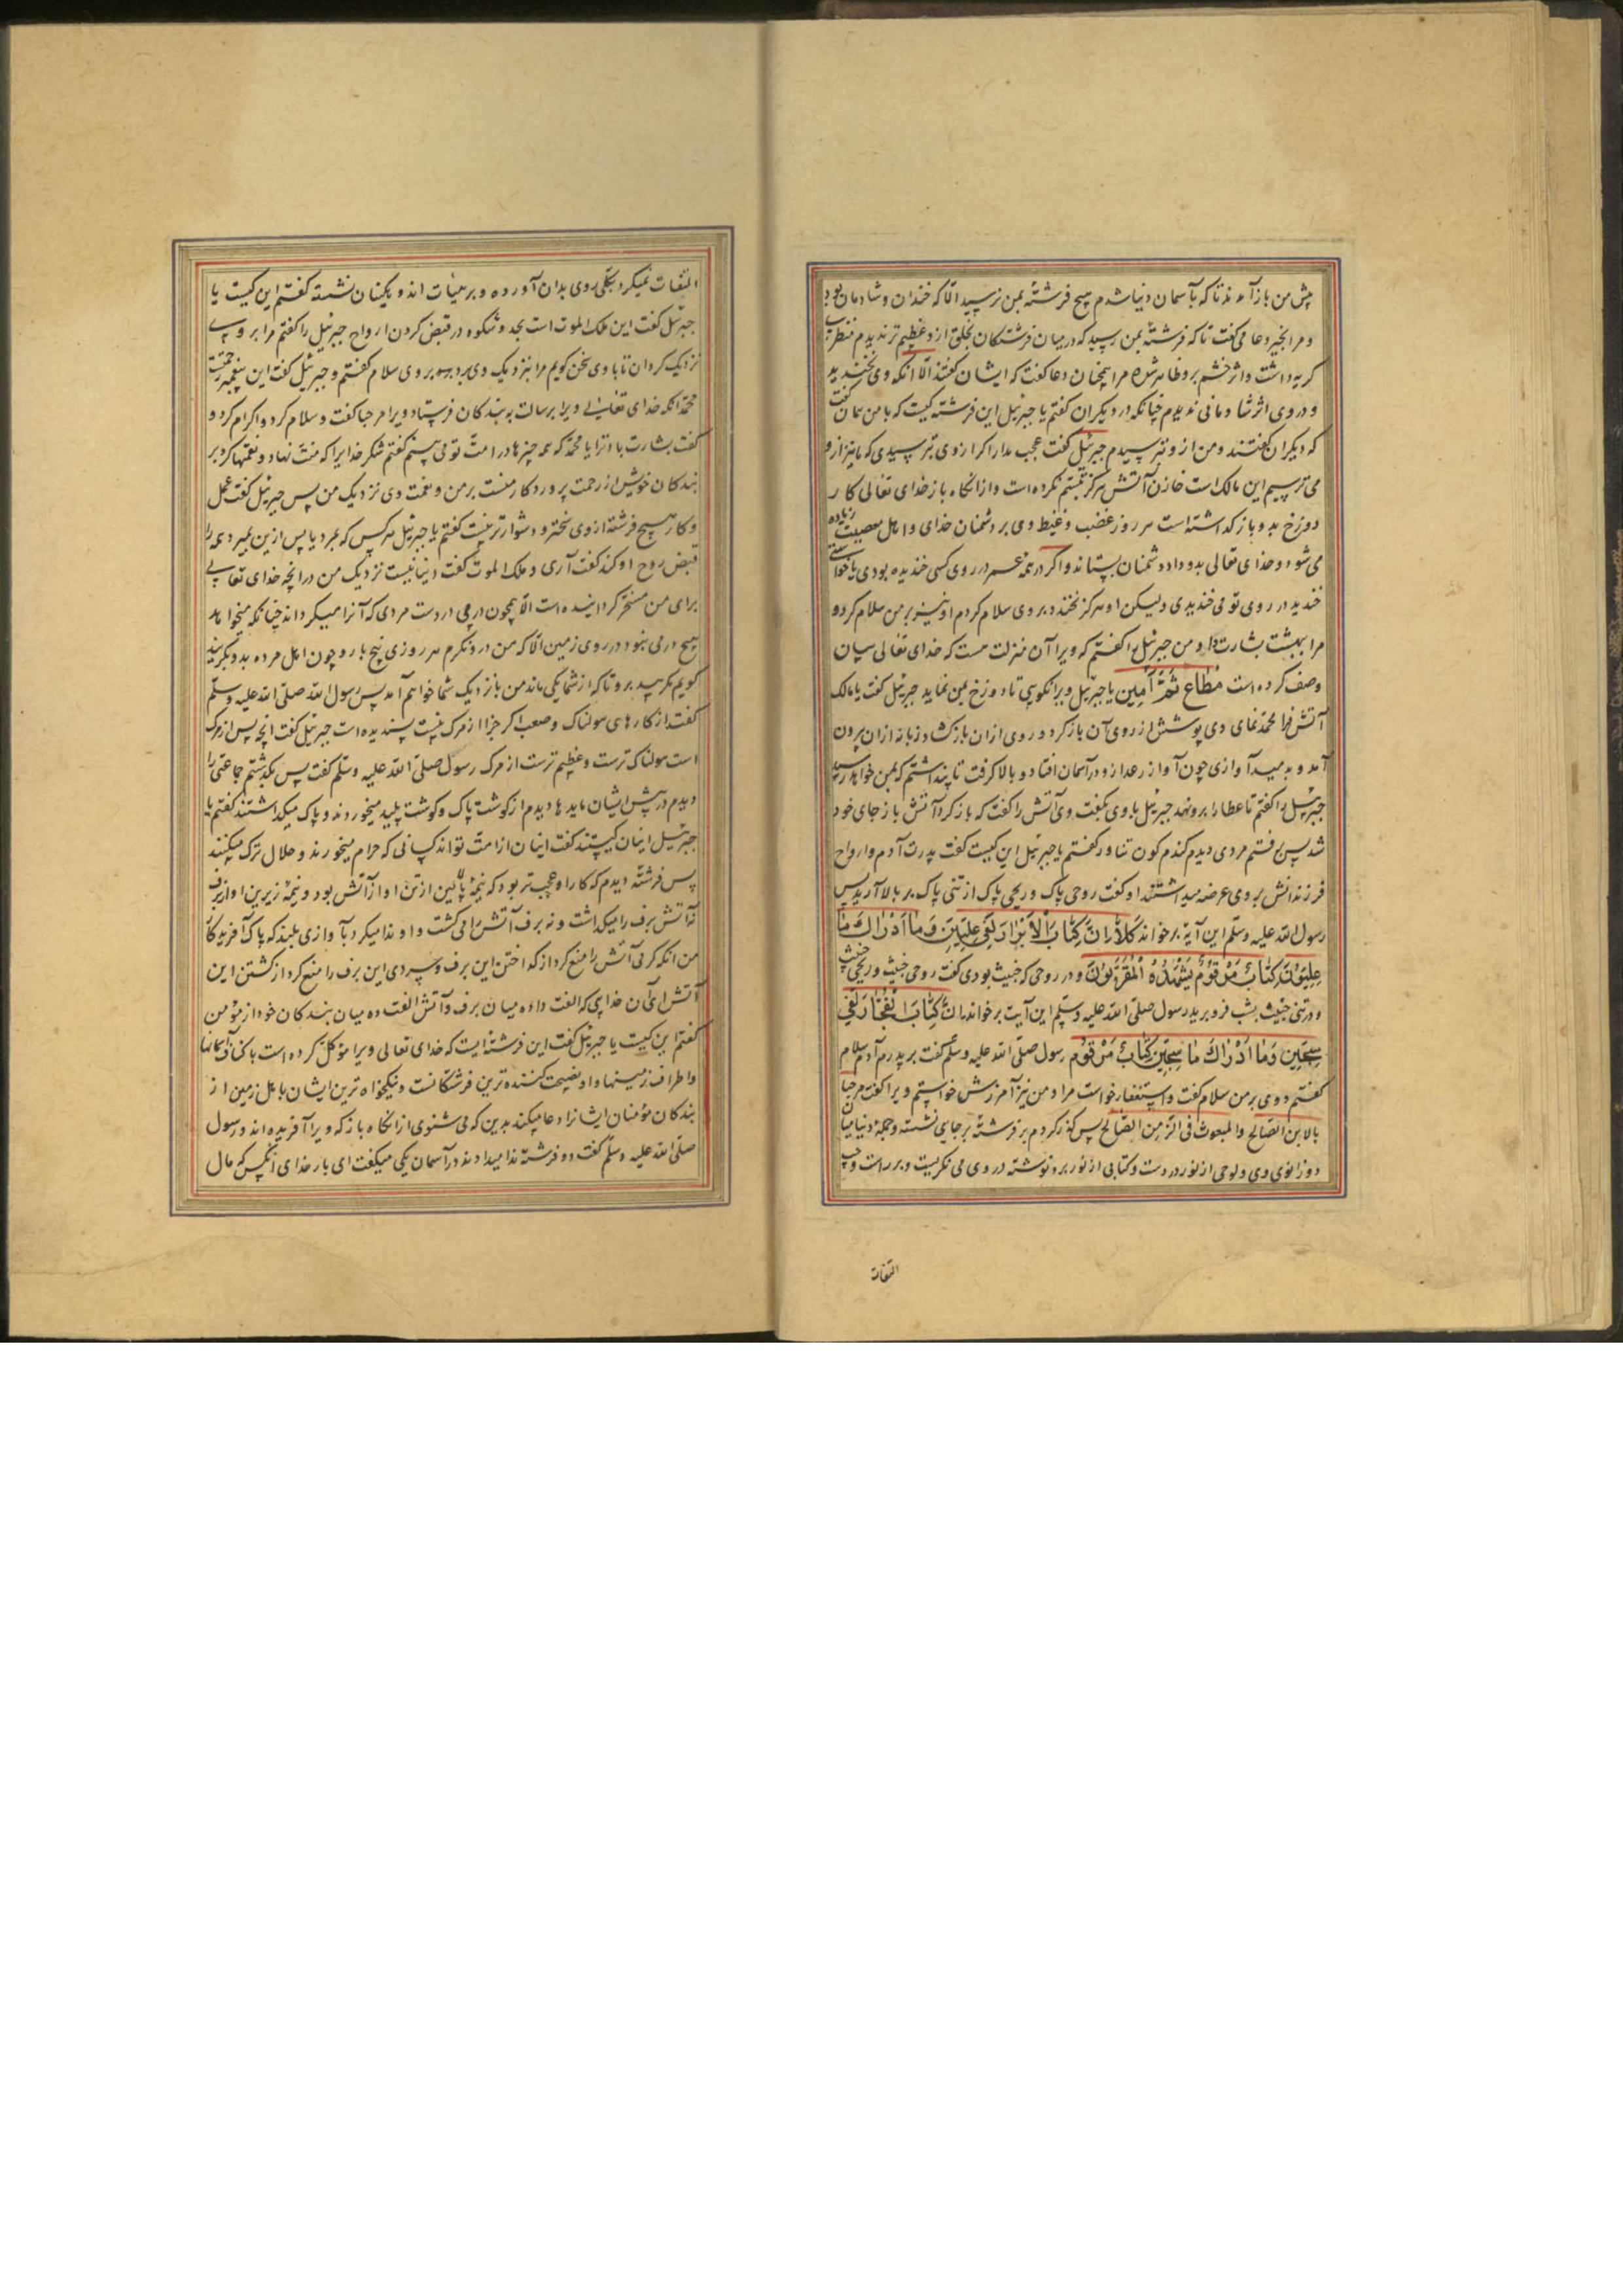 پیش من باز آمدند تا که بآسمان دنیا شدم هیچ فرشتهٔ بمن نرسید الّا که خندان و شادمان بود
و مرا بخیر دعا می کفت تا که فرشتهٔ بمن رسید که در میان فرشتکان بخلق از و عظیم تر ندیدم منظر
کریه داشت و اثر خشم برو ظاهر شده مرا همچنان دعا کفت که ایشان کفتند الّا انکه وی نخندید
و در وی اثر شادمانی ندیدم چنانکه در دیکران کفتم یا جبرئیل این فرشته کیست که با من همان کفت
که دیکران کفتند و من از و بترسیدم جبرئیل کفت عجب مدار اکر از وی بترسیدی که ما نیز ازو
می ترسیم این مالک است خازن آتش هرکز تبسّم نکرده است و از انکاه باز خدای تعالی کار
دوزخ بدو باز کذاشته است هر روز غضب و غیظ وی بر دشمنان خدای و اهل معصیت زیاده
می شود و خدای تعالی بدو داد دشمنان بستاند و اکر در همه عمر در روی کسی خندیده بودی یا خواستی
خندید در روی تو می خندیدی ولیکن او هرکز نخندد بر وی سلام کردم او نیز بر من سلام کرد و
مرا ببهشت بشارت داد و من جبرئیل را کفتم که ویرا آن منزلت هست که خدای تعالی بیان
وصف کرده است مُطَاعٍ ثَمَّ أَمِین یا جبرئیل ویرا نکویی تا دوزخ بمن نماید جبرئیل کفت یا مالک
آتش فرا محمّد نمای وی پوشش از روی آن باز کرد و روی ازان باز کشاد زبانه ازان برون
آمد و بدمید آوازی چون آواز رعد ازو در آسمان افتاد و بالا کرفت تا پنداشتم که بمن خواهد رسید
جبرئیل را کفتم تا غطا را برو نهد جبرئیل با وی بکفت وی آتش را کفت که باز کرد آتش باز جای خود
شد پس برفتم مردی دیدم کندم کون تناور کفتم یا جبرئیل این کیست کفت پدرت آدم و ارواح
فرزندانش بر وی عرضه میداشتند او کفت روحی پاک و ریحی پاک از تنی پاک بر بالا آرید پس
رسول الله علیه وسلّم این آیة برخواند کَلَّا إِنَّ کِتَابَ الْأَبْرَارِ لَفِی عِلِّیِّینَ وَمَا أَدْرَاكَ مَا
عِلِّیُّونَ کِتَابٌ مَرْقُومٌ یَشْهَدُهُ الْمُقَرَّبُونَ و در روحی که خبیث بودی کفت روحی خبیث و ریحی خبیث
و در تنی خبیث بشب فرو برید رسول صلی الله علیه وسلّم این آیت برخواند إِنَّ کِتَابَ الْفُجَّارِ لَفِی
سِجِّینٍ وَمَا أَدْرَاكَ مَا سِجِّینٌ کِتَابٌ مَرْقُومٌ رسول صلّی الله علیه وسلّم کفت بر پدرم آدم سلام
کفتم و وی بر من سلام کفت و استغفار خواست مرا و من نیز آمرزش خواستم ویرا کفت مرحبا
بالابن الصّالح والمبعوث فی الزّمن الصّالح پس کذر کردم بر فرشتهٔ بر جایی نشسته و جملهٔ دنیا میان
دو زانوی وی و لوحی از نور در دست و کتابی از نور برو نوشته در وی می نکریست و بر راست و چپ
التفات
التفات نمیکرد بکلّی روی بدان آورده و بر هیأت اندوهکینان نشسته کفتم این کیست یا
جبرئیل کفت این ملک الموت است بجدّ و شکوه در قبض کردن ارواح جبرئیل را کفتم مرا بر وی
نزدیک کردان تا با وی سخن کویم مرا بنزدیک وی برد بر وی سلام کفتم و جبرئیل کفت این پیغمبر رحمتست
محمّد انکه خدای تعالی ویرا برسالت به بندکان فرستاد ویرا مرحبا کفت و سلام کرد و اکرام کرد و
کفت بشارت باد ترا یا محمّد که همه چیزها در امّت تو می بینم کفتم شکر خدایرا که منّت نهاد و نعمتها کرد بر
بندکان خویش از رحمت پروردکار منست بر من و نعمت وی نزدیک من پس جبرئیل کفت عمل
و کار هیچ فرشته از وی سختر و دشوارتر نیست کفتم یا جبرئیل هر کس که بمرد یا پس ازین بمیرد همه را
قبض روح او کند کفت آری و ملک الموت کفت دنیا نیست نزدیک من در انچه خدای تعالی
برای من مسخّر کردانیده است الّا همچون درمی در دست مردی که آنرا میکرداند چنانکه میخواهد
هیچ درمی نبود در روی زمین الّا که من درو نکرم هر روزی پنج بار و چون اهل مرده بدو بکریند
کویم مکریید برو تا که از شما یکی ماند من باز نزدیک شما خواهم آمد پس رسول الله صلّی الله علیه وسلّم
کفت از کارهای هولناک و صعب اکر جزا از مرک نیست پسندیده است جبرئیل کفت انچه پس از مرک
است هولناک ترست و عظیم ترست از مرک رسول صلّی الله علیه وسلّم کفت پس بکذشتم جماعتی را
دیدم در پیش ایشان مایدها دیدم از کوشت پاک و کوشت پلید میخوردند و پاک میکذاشتند کفتم یا
جبرئیل اینان کیستند کفت اینان از امّت تواند کسانی که حرام میخورند و حلال ترک میکنند
پس فرشته دیدم که کار او عجب تر بود که نیمهٔ بالائین از تن او از آتش بود و نیمهٔ زیرین او از برف
نه آتش برف را میکداخت و نه برف آتش را می کشت و او ندا میکرد بآوازی بلند که پاک آفریدکار
من انکه کرمی آتش را منع کرد از کداختن این برف و سردی این برف را منع کرد از کشتن این
آتش ای آن خدایی که الفت داده میان برف و آتش الفت ده میان بندکان خود از مؤمن
کفتم این کیست یا جبرئیل کفت این فرشته ایست که خدای تعالی ویرا مؤکّل کرده است باکناف آسمانها
و اطراف زمینها و او نصیحت کننده ترین فرشتکانست و نیکخواه ترین ایشان باهل زمین از
بندکان مؤمنان ایشانرا دعا میکند بدین که می شنوی از انکاه باز که ویرا آفریده اند و رسول
صلّی الله علیه وسلّم کفت دو فرشته ندا میدادند در آسمان یکی میکفت ای بار خدای انکس که مال